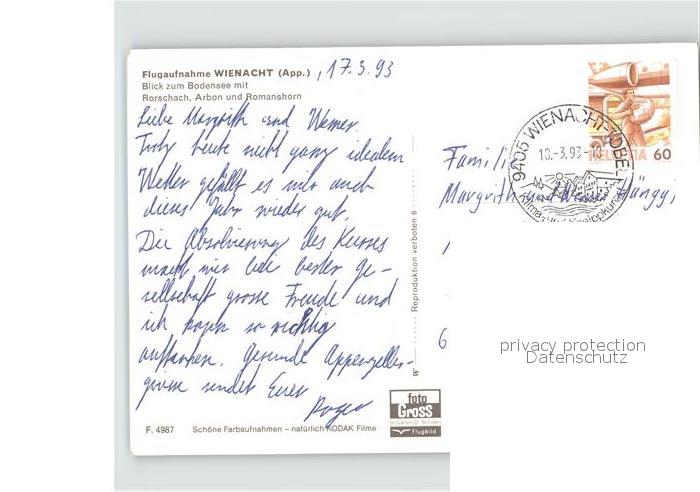 Flugaufnahme WIENACHT (App.) , 17.3.93
Blick zum Bodensee mit
Rorschach, Arbon und Romanshorn
Liebe Margrith und Werner.
Trotz heute nicht ganz idealem
Wetter gefällt es mir auch
dieses Jahr wieder gut.
Die Absolvierung des Kurses
macht mir bei bester Ge-
sellschaft grosse Freude und
ich kann so richtig
auftanken. Gesunde Appenzeller-
grüsse sendet Euer
Roger
F. 4987 Schöne Farbaufnahmen – natürlich KODAK Filme
Reproduktion verboten
foto
GROSS
St. Gallen
Flugbild
9405 WIENACHT-TOBEL
10.-3.93-10
HELVETIA 60
Famili
Margrith und Werner Hängg,
6
privacy protection
Datenschutz